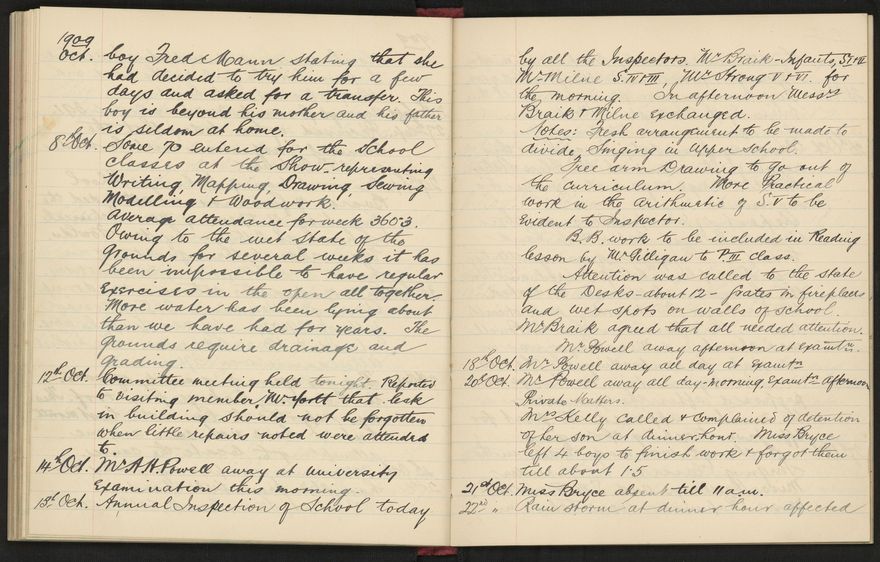 1909
Oct. boy Fred Mann stating that she
had decided to try him for a few
days and asked for a transfer. This
boy is beyond his mother and his father
is seldom at home.
8th Oct. Some 70 entered for the School
Classes at the Show, representing
Writing, Mapping, Drawing, Sewing
Modelling & Woodwork.
Average attendance for week 360.3.
Owing to the wet state of the
Grounds for several weeks it has
been impossible to have regular
Exercises in the open all together.
More water has been lying about
than we have had for years. The
grounds require drainage and
grading.
12th Oct. Committee meeting held tonight. Reported
to visiting member, Mr that leak
in building should not be forgotten
when little repairs noted were attended
to.
14th Oct. Mr A.H. Powell away at University
Examination this morning.
15th Oct. Annual Inspection of School today
by all the Inspectors. Mr Braik - Infants, S. I & II
Mr Milne S. IV & III, Mr Strong V & VI. for
the morning. In afternoon Messrs
Braik & Milne exchanged.
Notes: Fresh arrangement to be made to
divide Singing in Upper School.
Free arm Drawing to go out of
the curriculum. More Practical
work in the arithmetic of S. V to be
evident to Inspector.
B.B. work to be included in Reading
lesson by Mr Gilligan to P. III class.
Attention was called to the state
of the Desks - about 12 - grates in fireplaces
and wet spots on walls of school.
Mr Braik agreed that all needed attention.
Mr Powell away afternoon at examtn.
18th Oct. Mr Powell away all day at Examtn
20th Oct. Mr Powell away all day - morning Examtn afternoon
Private Matters.
Mrs Kelly called & complained of detention
of her son at dinner hour. Miss Bryce
left 4 boys to finish work & forgot them
till about 1.5
21st Oct. Miss Bryce absent till 11 a.m.
22nd " Rain storm at dinner hour affected